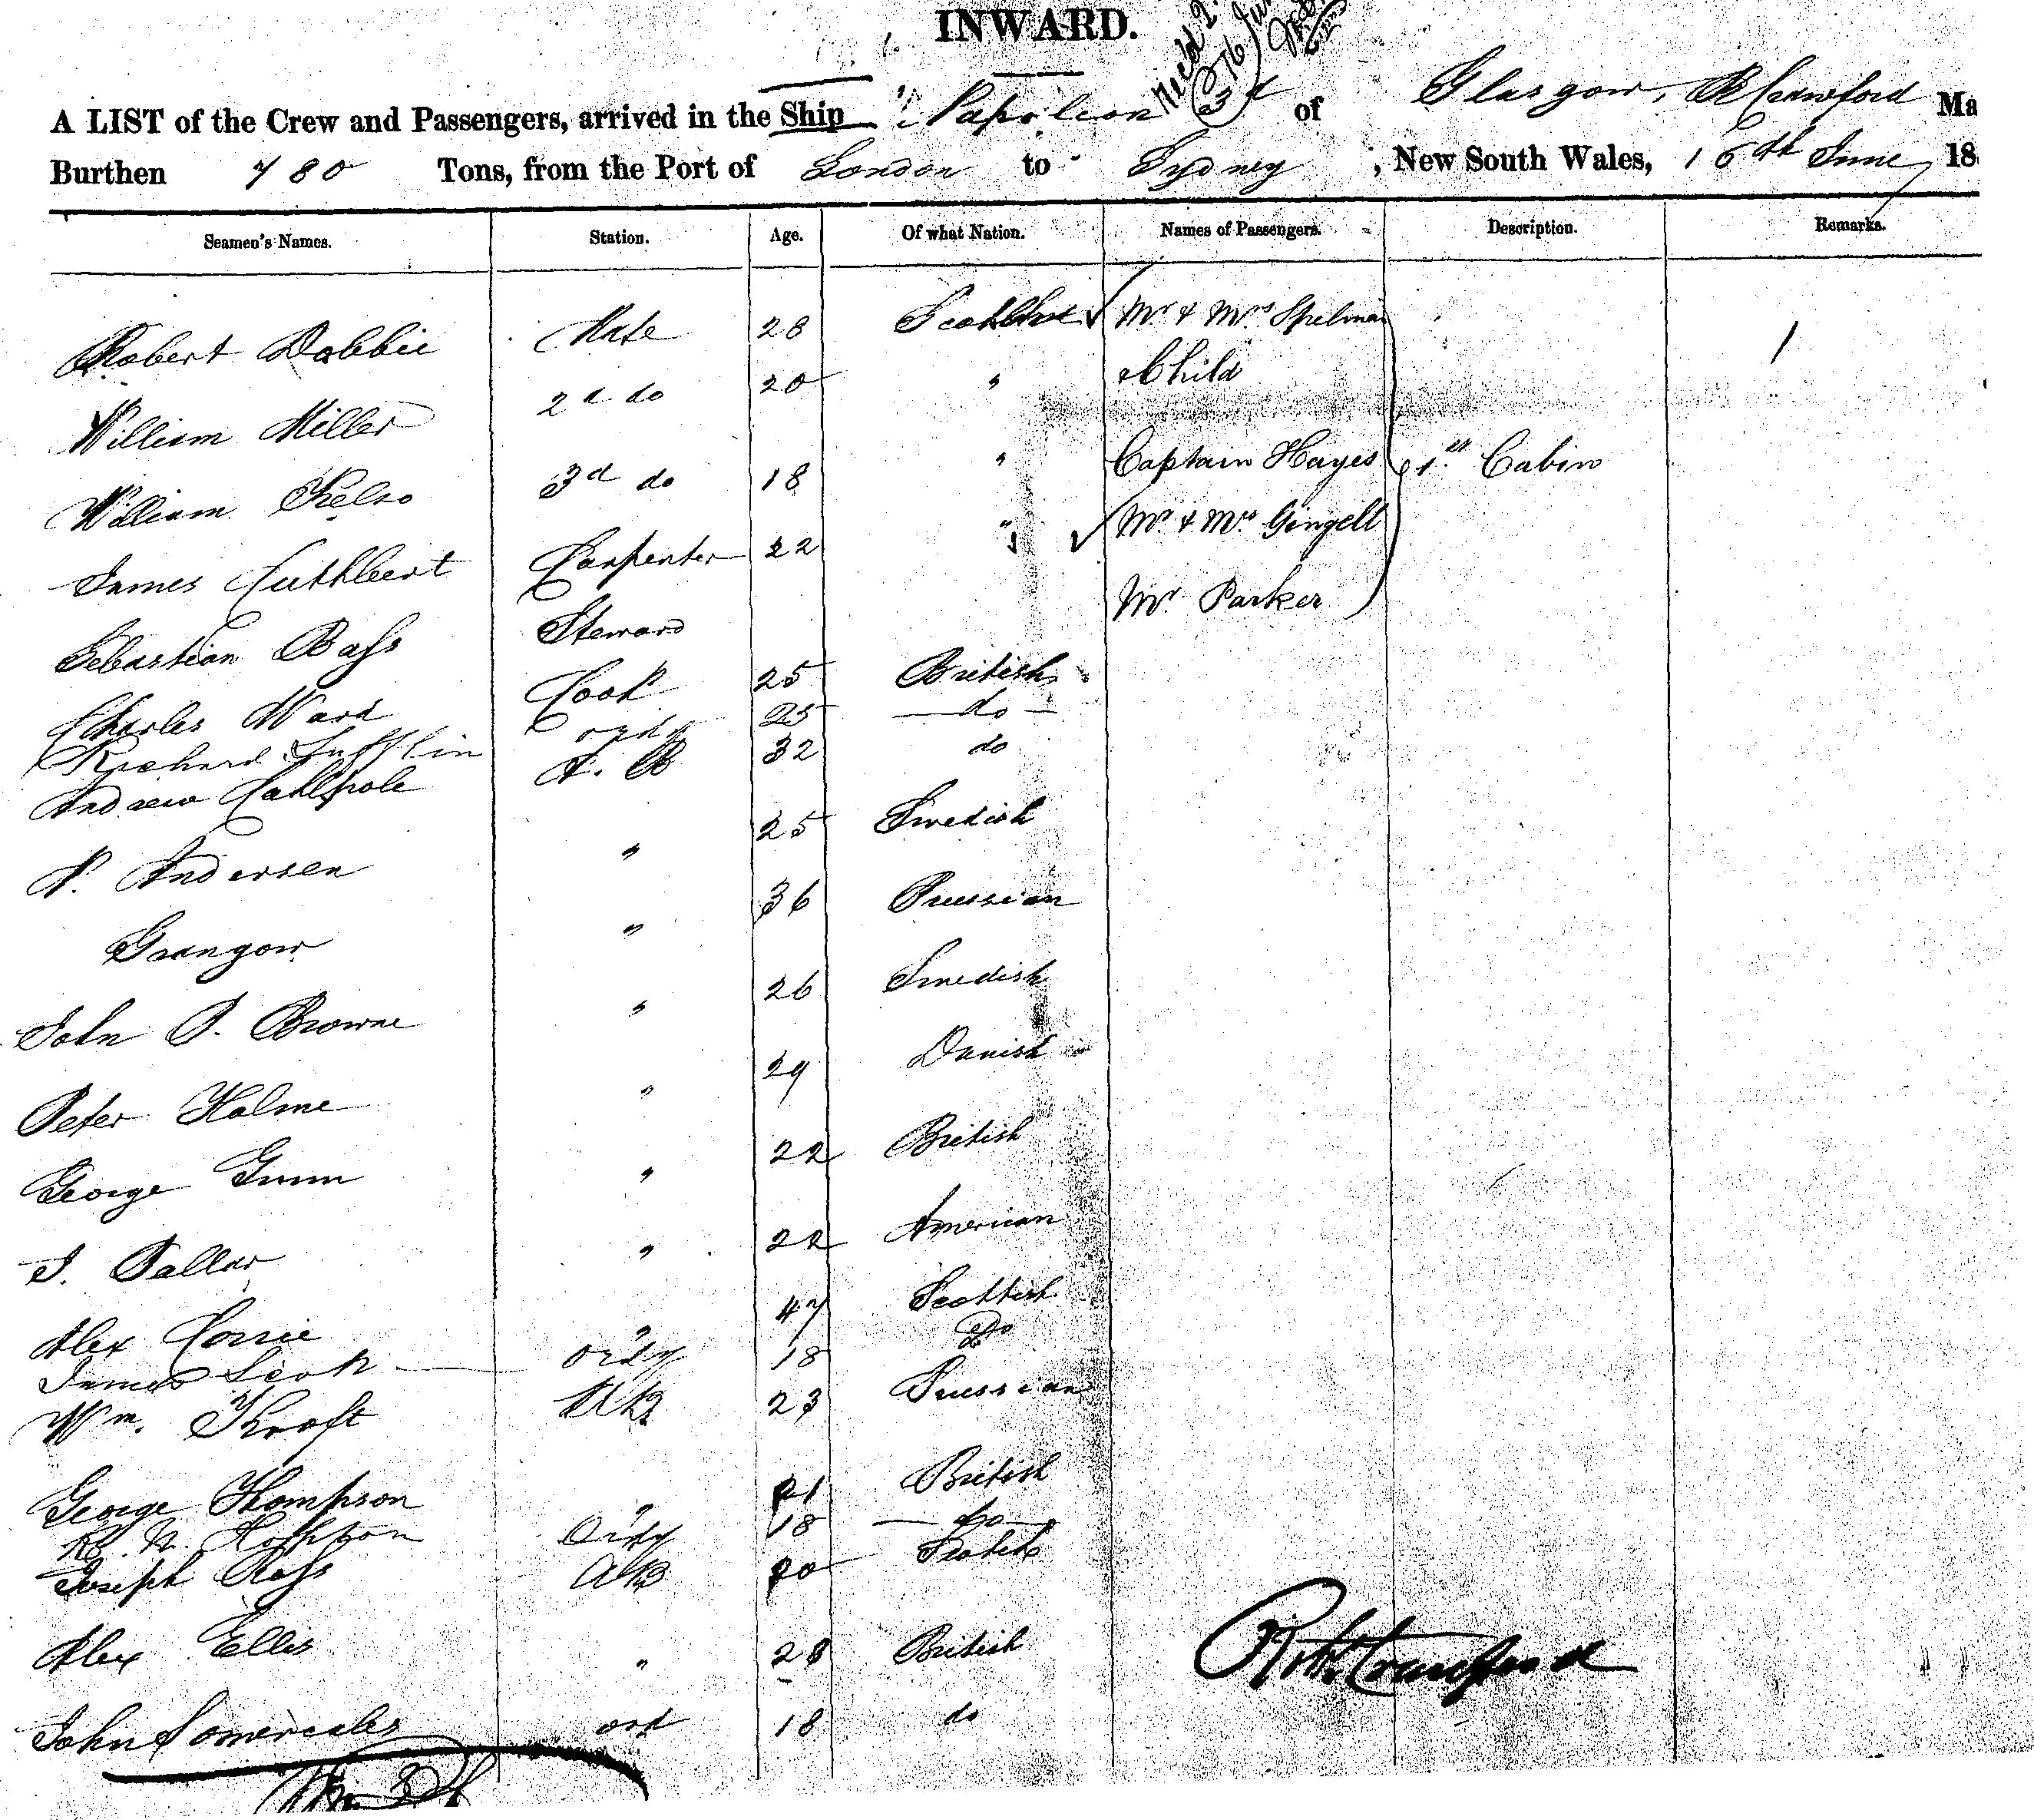 INWARD.
A LIST of the Crew and Passengers, arrived in the Ship Napoleon 3d of Glasgow, R Crawford Ma
Burthen 780 Tons, from the Port of London to Sydney, New South Wales, 16th June 18
Seamen's Names. Station. Age. Of what Nation. Names of Passengers. Description. Remarks.
Robert Dobbie Mate 28 Mr & Mrs Spelman
William Miller 2d do 20 " & Child
William Kelso 3d do 18 " Captain Hayes 1st Cabin
James Cuthbert Carpenter 22 " Mr & Mrs Gingell
Sebastian Bass Steward Mr Parker
Charles Ward Cook 25 British
Richard ordy 25 do
Andrew A. B 32 do
P. Andersen " 25 Swedish
" 36 Prussian
John P. Browne " 26 Swedish
Peter Holme " 29 Danish
George Gunn " 22 British
" 22 American
Alex Corrie " 47 Scottish
James Scott ordy 18 Do
Wm. Kroft AB 23 Prussian
George Thompson " 21 British
Ordy 18 do
Joseph Ross AB 20 Scotch
Alex Ellis " 28 British
John Somerscales ord 18 do
Robt Crawford